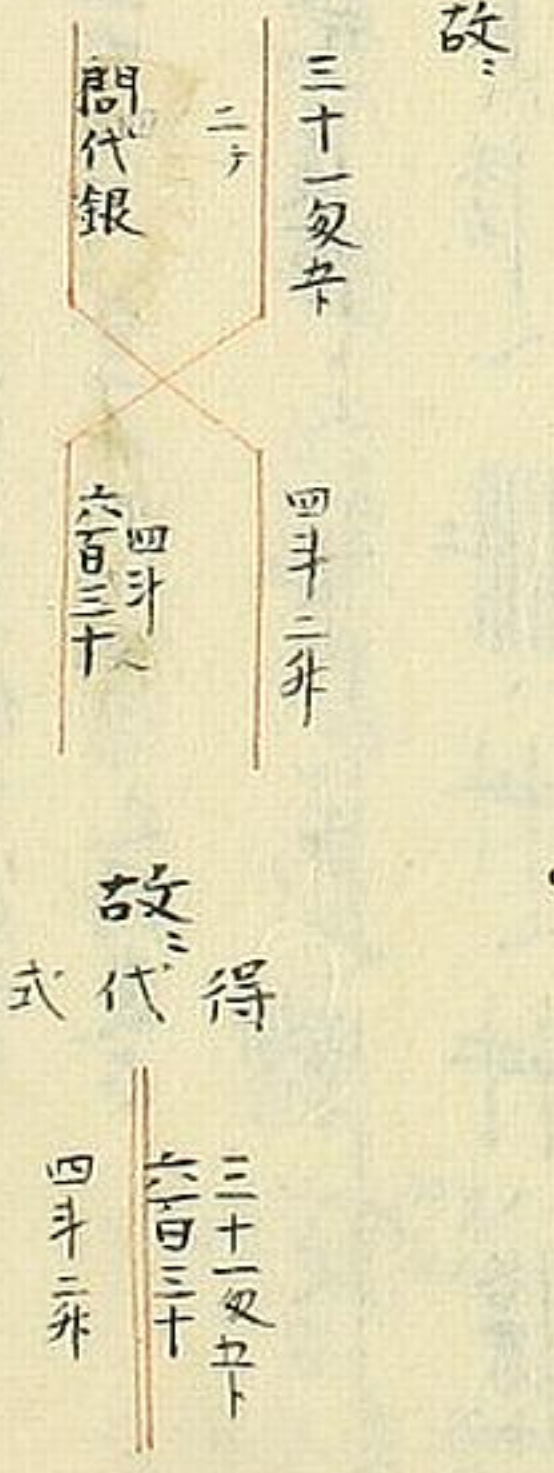 故ニ
三十一匁五卜
二テ
問代銀
四斗二升
四斗
六百三十
故ニ
得
代
式
三十一匁五卜
六百三十
四斗二升